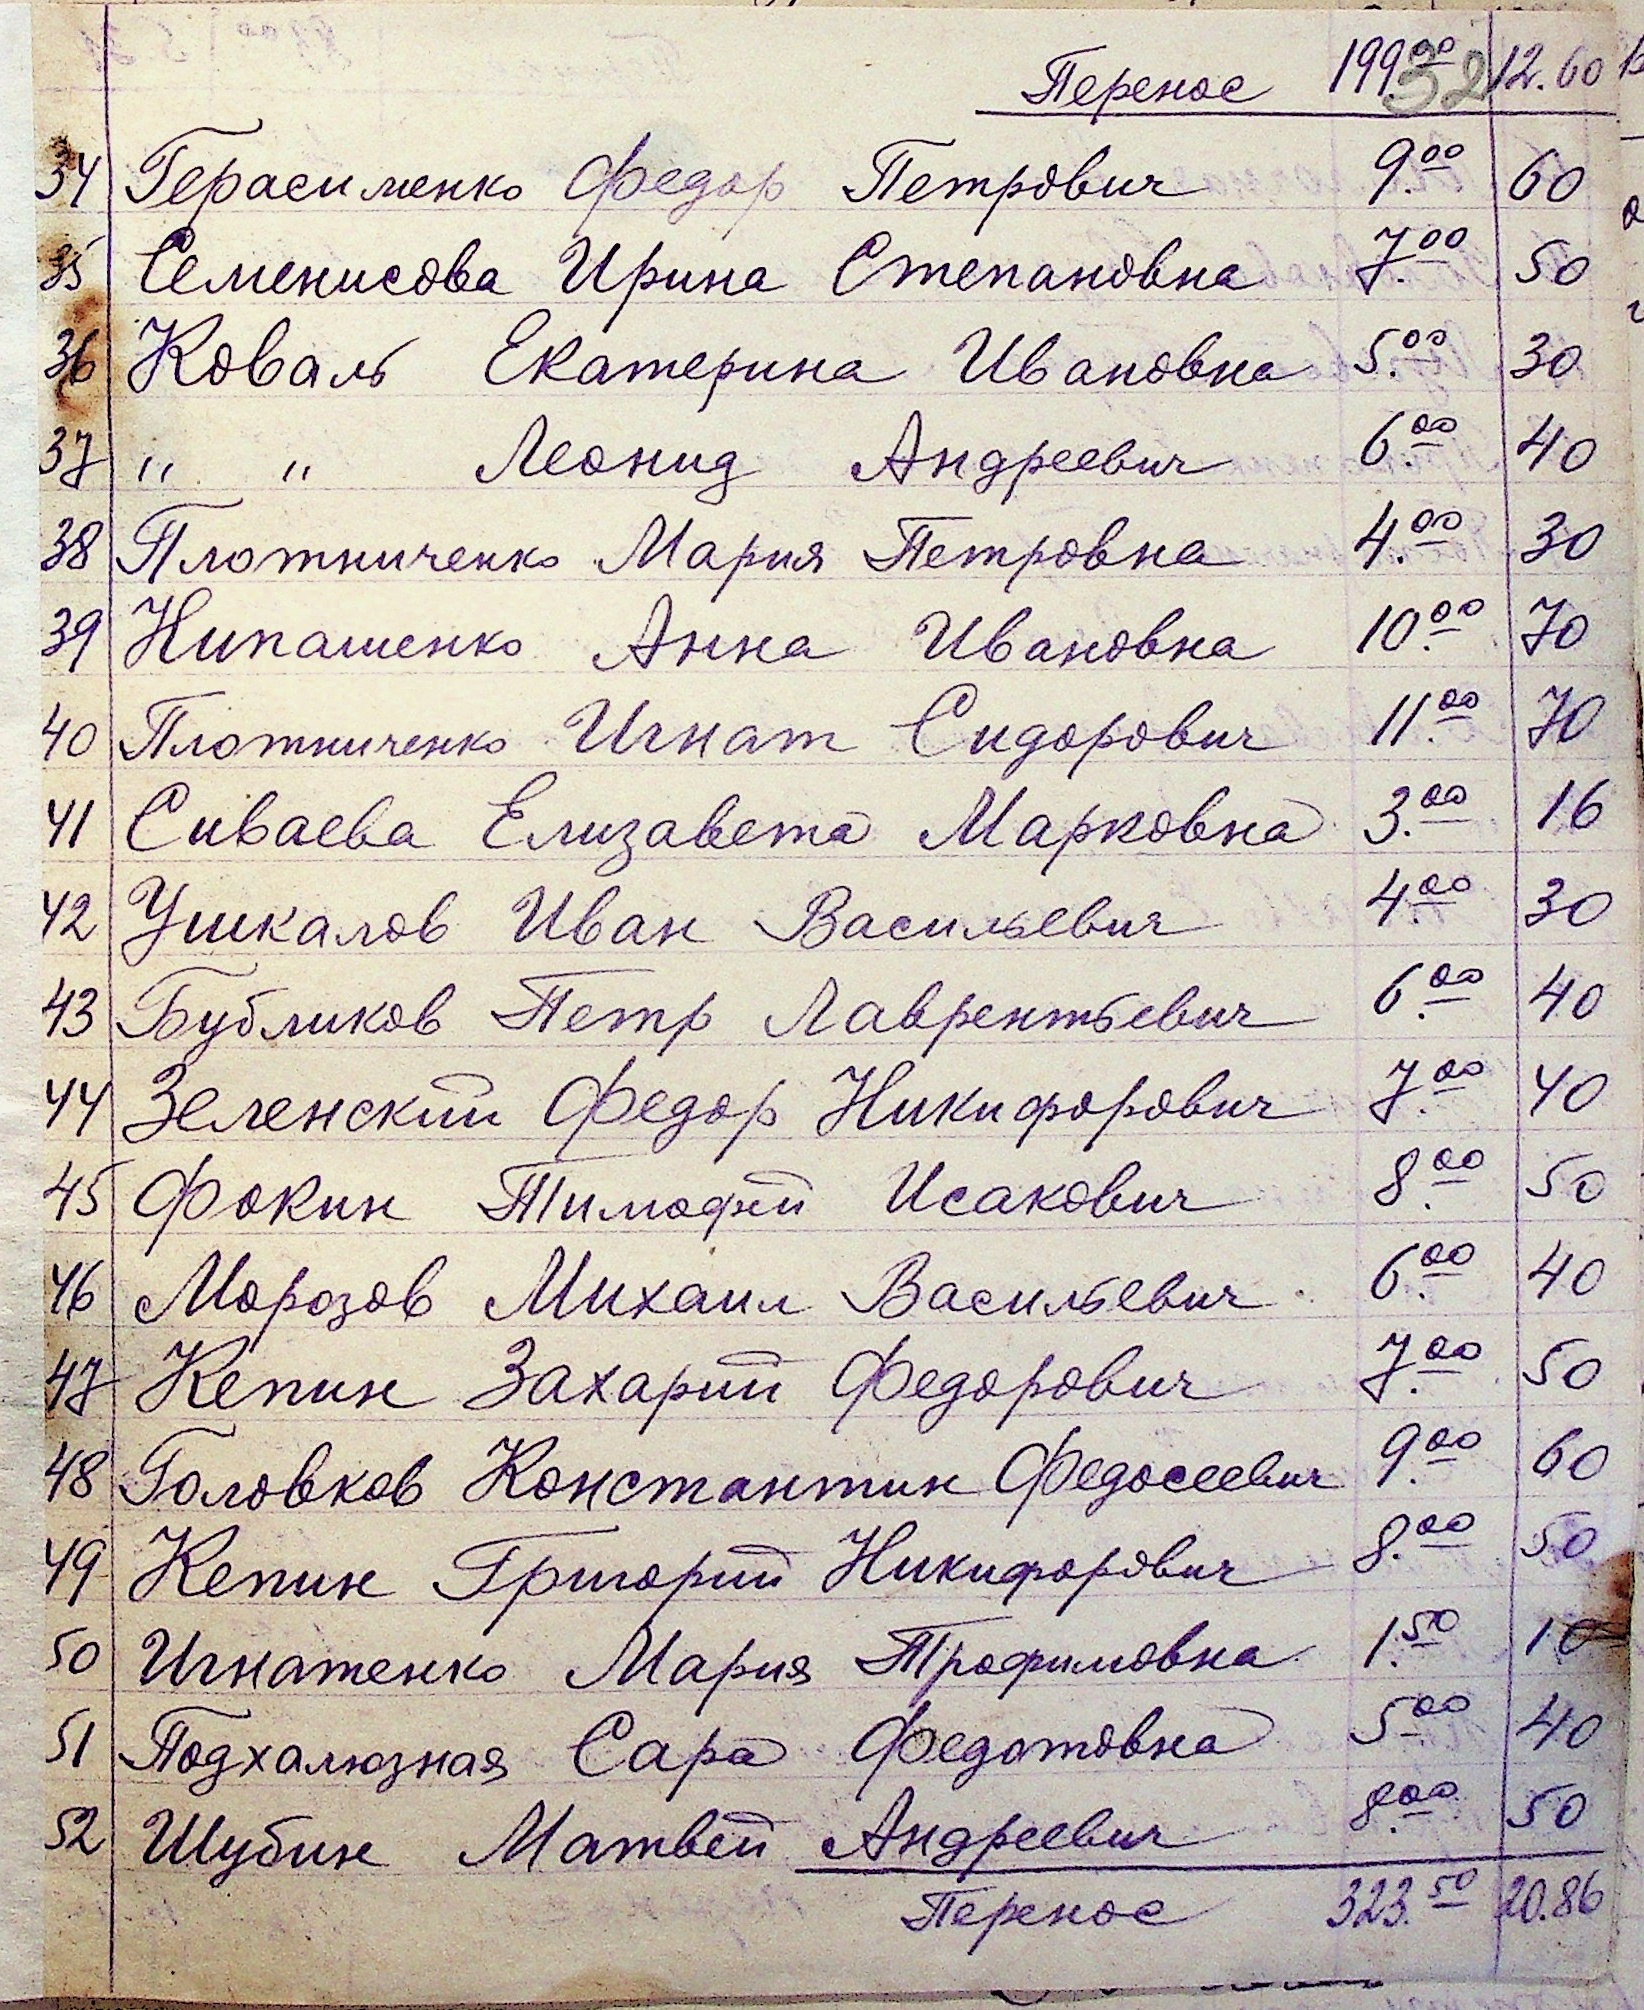 Перенос 199.00 12.60
32
34 Герасименко Федор Петрович 9.00 60
35 Семенисова Ирина Степановна 7.00 50
36 Коваль Екатерина Ивановна 5.00 30
37 " " Леонид Андреевич 6.00 40
38 Плотниченко Мария Петровна 4.00 30
39 Нипашенко Анна Ивановна 10.00 70
40 Плотниченко Игнат Сидорович 11.00 70
41 Сиваева Елизавета Марковна 3.00 16
42 Ушкалов Иван Васильевич 4.00 30
43 Бубликов Петр Лаврентьевич 6.00 40
44 Зеленский Федор Никифорович 7.00 40
45 Фокин Тимофей Исакович 8.00 50
46 Морозов Михаил Васильевич 6.00 40
47 Кепин Захарий Федорович 7.00 50
48 Головков Константин Федосеевич 9.00 60
49 Кепин Григорий Никифорович 8.00 50
50 Игнатенко Мария Трофимовна 1.50 10
51 Подхалюзная Сара Федотовна 5.00 40
52 Шубин Матвей Андреевич 8.00 50
Перенос 323.50 20.86